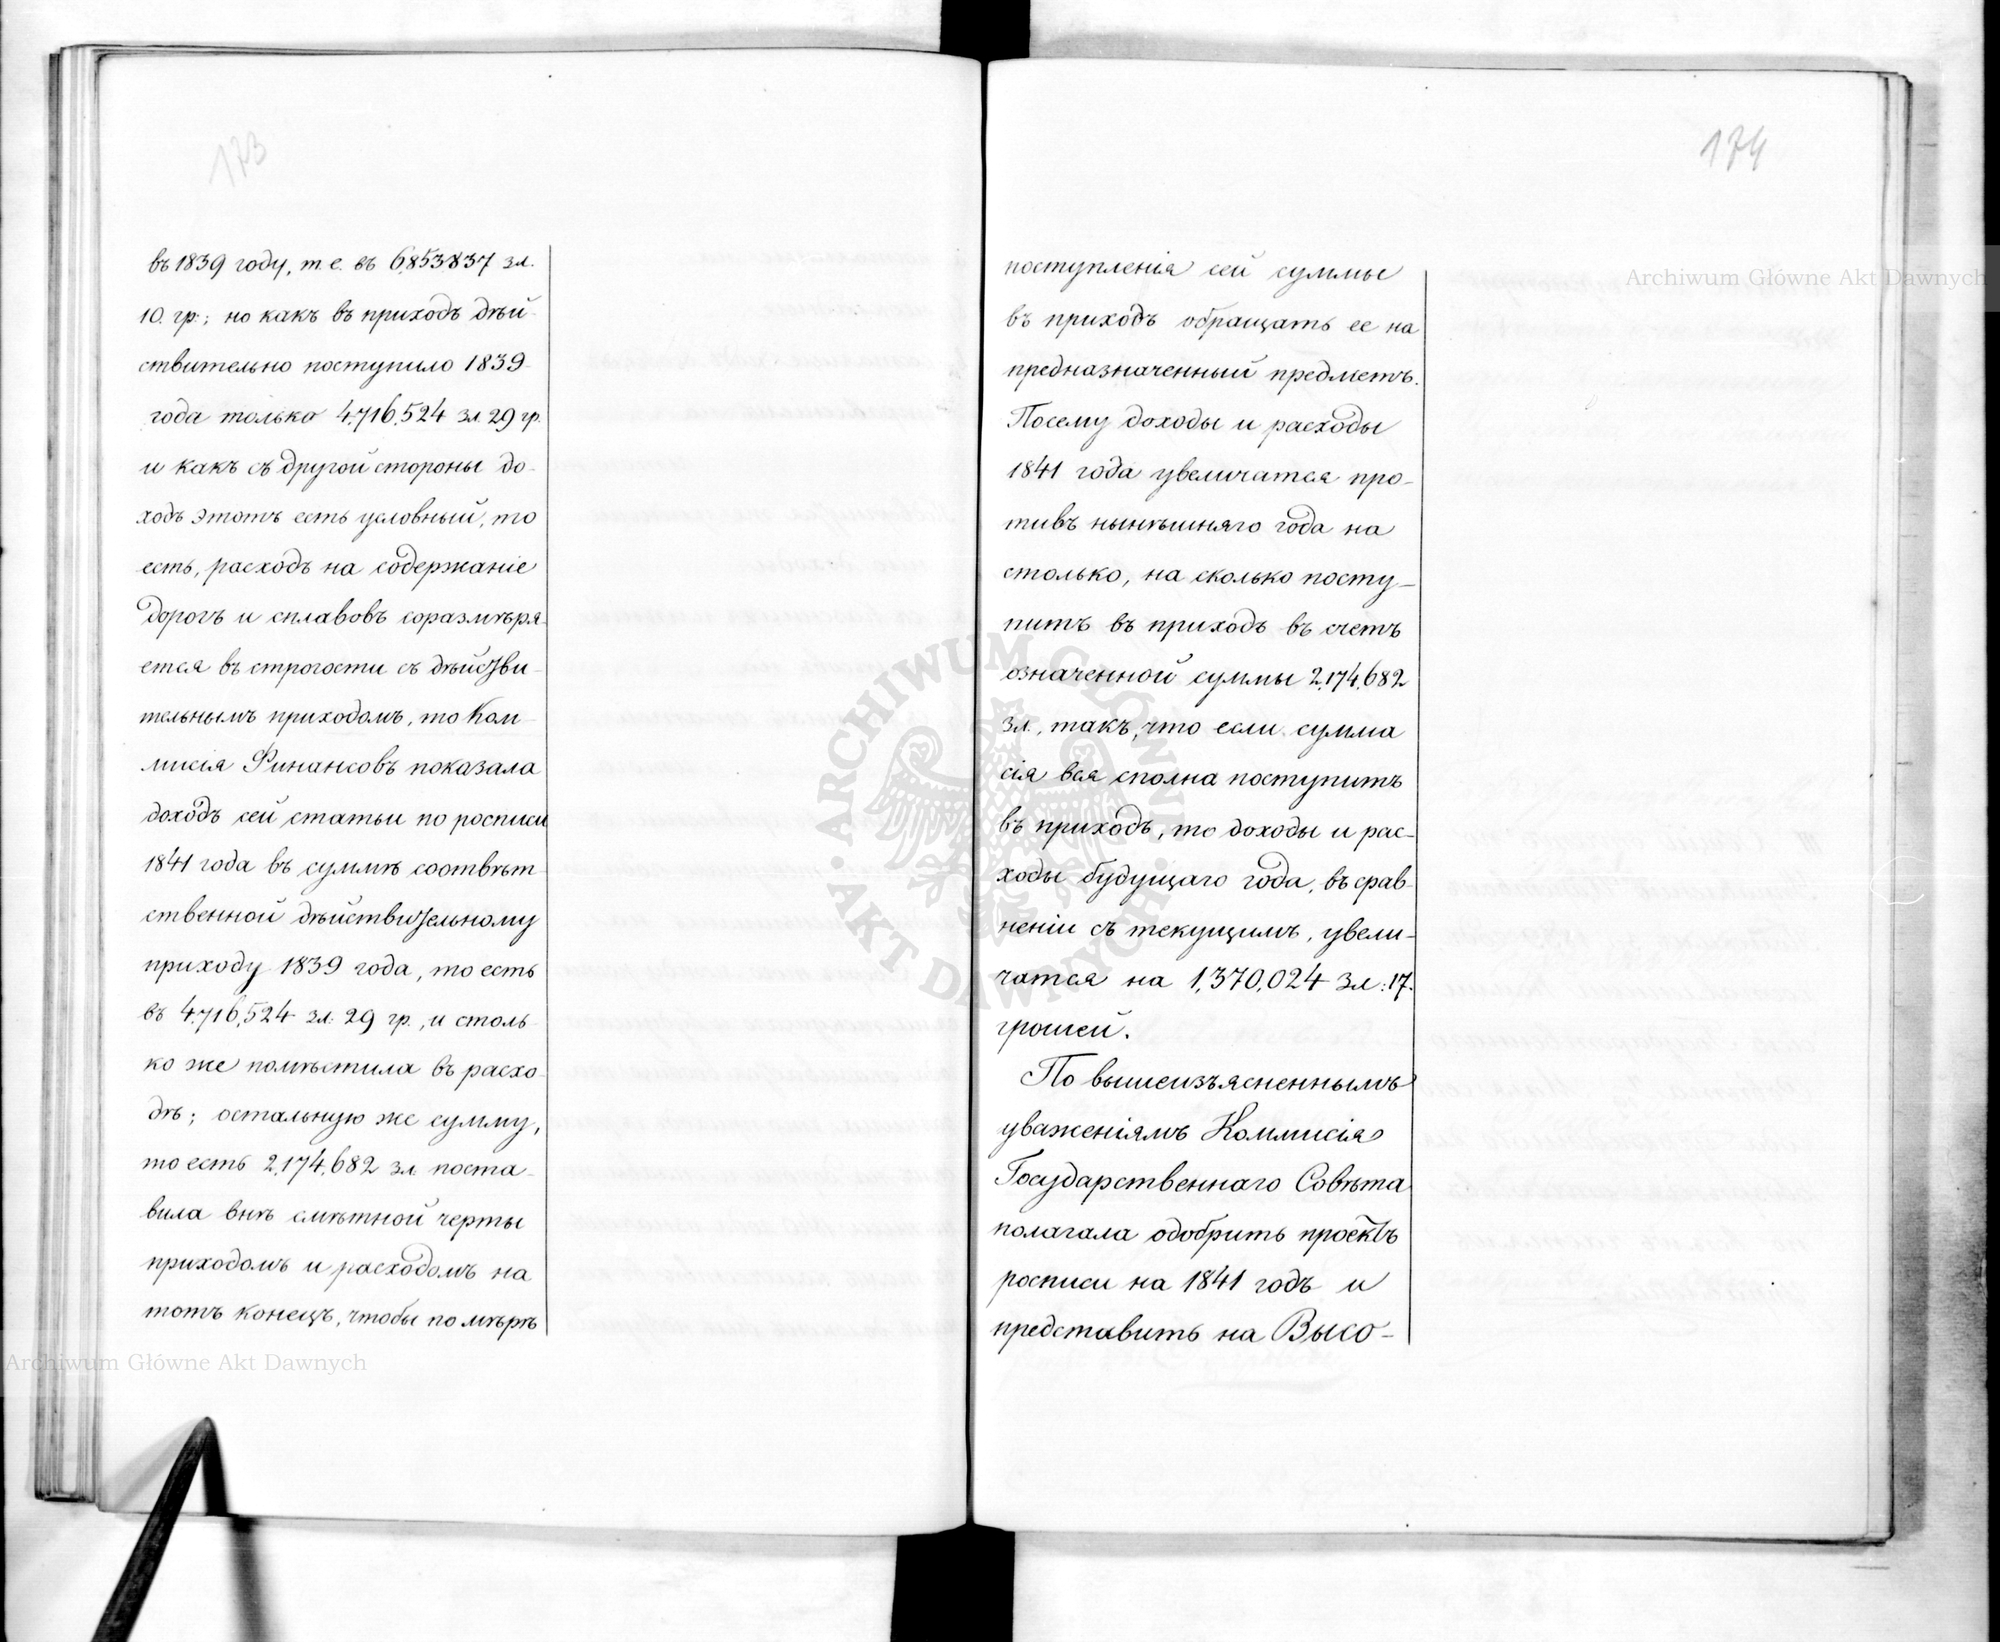 173
въ 1839 году, т. е. въ 6,853837 зл.
10. гр.; но какъ въ приходъ дѣй-
ствительно поступило 1839
года только 4,716,524 зл. 29 гр.
и какъ съ другой стороны до-
ходъ этотъ есть условный, то
есть, расходъ на содержаніе
дорогъ и сплавовъ соразмѣря-
ется въ строгости съ дѣйстви-
тельнымъ приходомъ, то Ком-
мисія Финансовъ показала
доходъ сей статьи по росписи
1841 года въ суммѣ соотвѣт-
ственной дѣйствительному
приходу 1839 года, то есть
въ 4,716,524 зл. 29 гр., и столь-
ко же помѣстила въ расхо-
дѣ; остальную же сумму,
то есть 2,174,682 зл. поста-
вила внѣ смѣтной черты
приходомъ и расходомъ на
тотъ конецъ, чтобы по мѣрѣ
174
поступленія сей суммы
въ приходъ обращать ее на
предназначенный предметъ.
Посему доходы и расходы
1841 года увеличатся про-
тивъ нынѣшняго года на
столько, на сколько посту-
питъ въ приходъ въ счетъ
означенной суммы 2,174,682
зл., такъ, что если сумма
сія вся сполна поступитъ
въ приходъ, то доходы и рас-
ходы будущаго года, въ срав-
неніи съ текущимъ, увели-
чатся на 1,370,024 зл: 17.
грошей.
По вышеизъясненнымъ
уваженіямъ Коммисія
Государственнаго Совѣта
полагала одобрить проектъ
росписи на 1841 годъ и
представить на Высо-
Archiwum Główne Akt Dawnych
Archiwum Główne Akt Dawnych
ARCHIWUM GŁÓWNE · AKT DAWNYCH ·